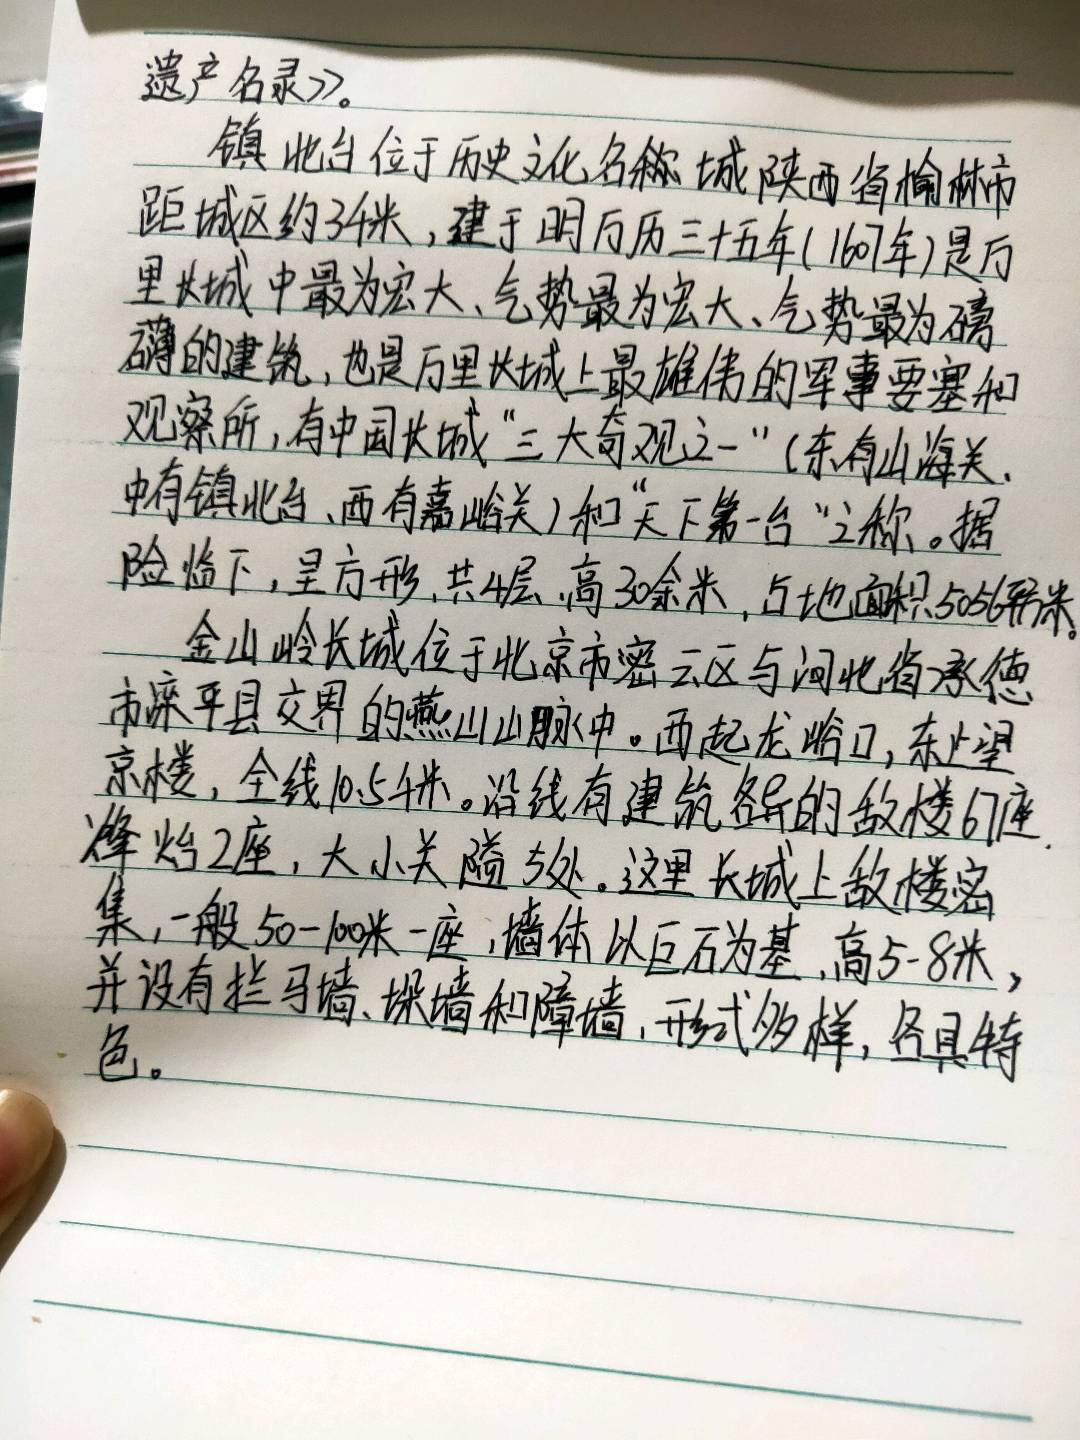 遗产名录》。
镇北台位于历史文化名称城陕西省榆林市
距城区约3千米，建于明万历三十五年(1607年)是万
里长城中最为宏大、气势最为宏大、气势最为磅
礴的建筑，也是万里长城上最雄伟的军事要塞和
观察所，有中国长城“三大奇观之一”(东有山海关、
中有镇北台、西有嘉峪关)和“天下第一台”之称。据
险临下，呈方形，共4层，高30余米，占地面积5056平方米。
金山岭长城位于北京市密云区与河北省承德
市滦平县交界的燕山山脉中。西起龙峪口，东止望
京楼，全线10.5千米。沿线有建筑各异的敌楼67座，
烽燧2座，大小关隘5处。这里长城上敌楼密
集，一般50-100米一座，墙体以巨石为基，高5-8米，
并设有拦马墙、垛墙和障墙，形式多样，各具特
色。